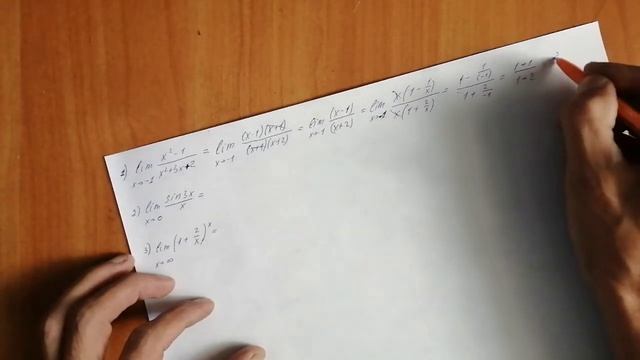 1) lim x→-1 x²-1 / x²+3x+2 = lim x→-1 (x-1)(x+1) / (x+1)(x+2) = lim x→-1 (x-1) / (x+2) = lim x→-1 x(1 - 1/x) / x(1 + 2/x) = 1 - 1/(-1) / 1 + 2/-1 = 1+1 / 1-2 =
2) lim x→0 sin3x / x =
3) lim x→∞ (1 + 2/x)^x =